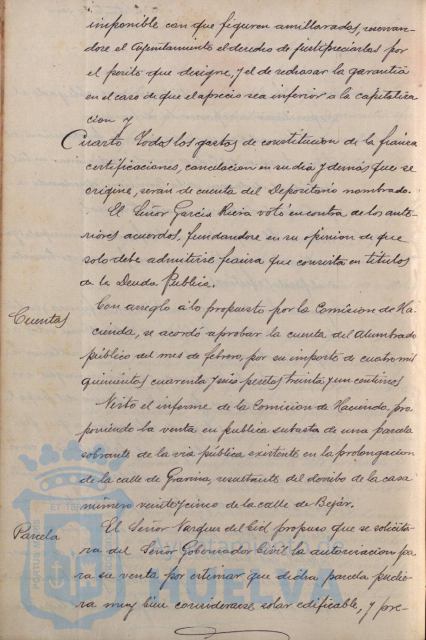 imponible con que figuren amillaradas, reservan-
dose el Ayuntamiento el derecho de justipreciarlas por
el perito que designe, y el de rechasar la garantia
en el caso de que el aprecio sea inferior a la capitaliza
cion y
Cuarto Todos los gastos de constitucion de la fianza
certificaciones, cancelacion en su dia y demás que se
origine, serán de cuenta del Depositario nombrado.
El Señor Garcia Riera votó en contra de los ante-
riores acuerdos, fundandose en su opinion de que
solo debe admitirse fianza que consista en titulos
de la Deuda Publica.
Cuentas
Con arreglo á lo propuesto por la Comision de Ha-
cienda, se acordó aprobar la cuenta del Alumbrado
público del mes de febrero, por su importe de cuatro mil
quinientas cuarenta y seis pesetas treinta y un centimos
Visto el informe de la Comision de Hacienda, pro
poniendo la venta en publica subasta de una parcela
sobrante de la via pública existente en la prolongacion
de la calle de Gravina, resultante del derribo de la casa
número veinte y cinco de la calle de Bejár.
Parcela
El Señor Vargas del Cid, propuso que se solicita-
ra del Señor Gobernador Civil la autorizacion pa
ra su venta por estimar que dicha parcela pudie-
ra muy bien considerarse solar edificable, y pre-
Ayuntamiento de
HUELVA